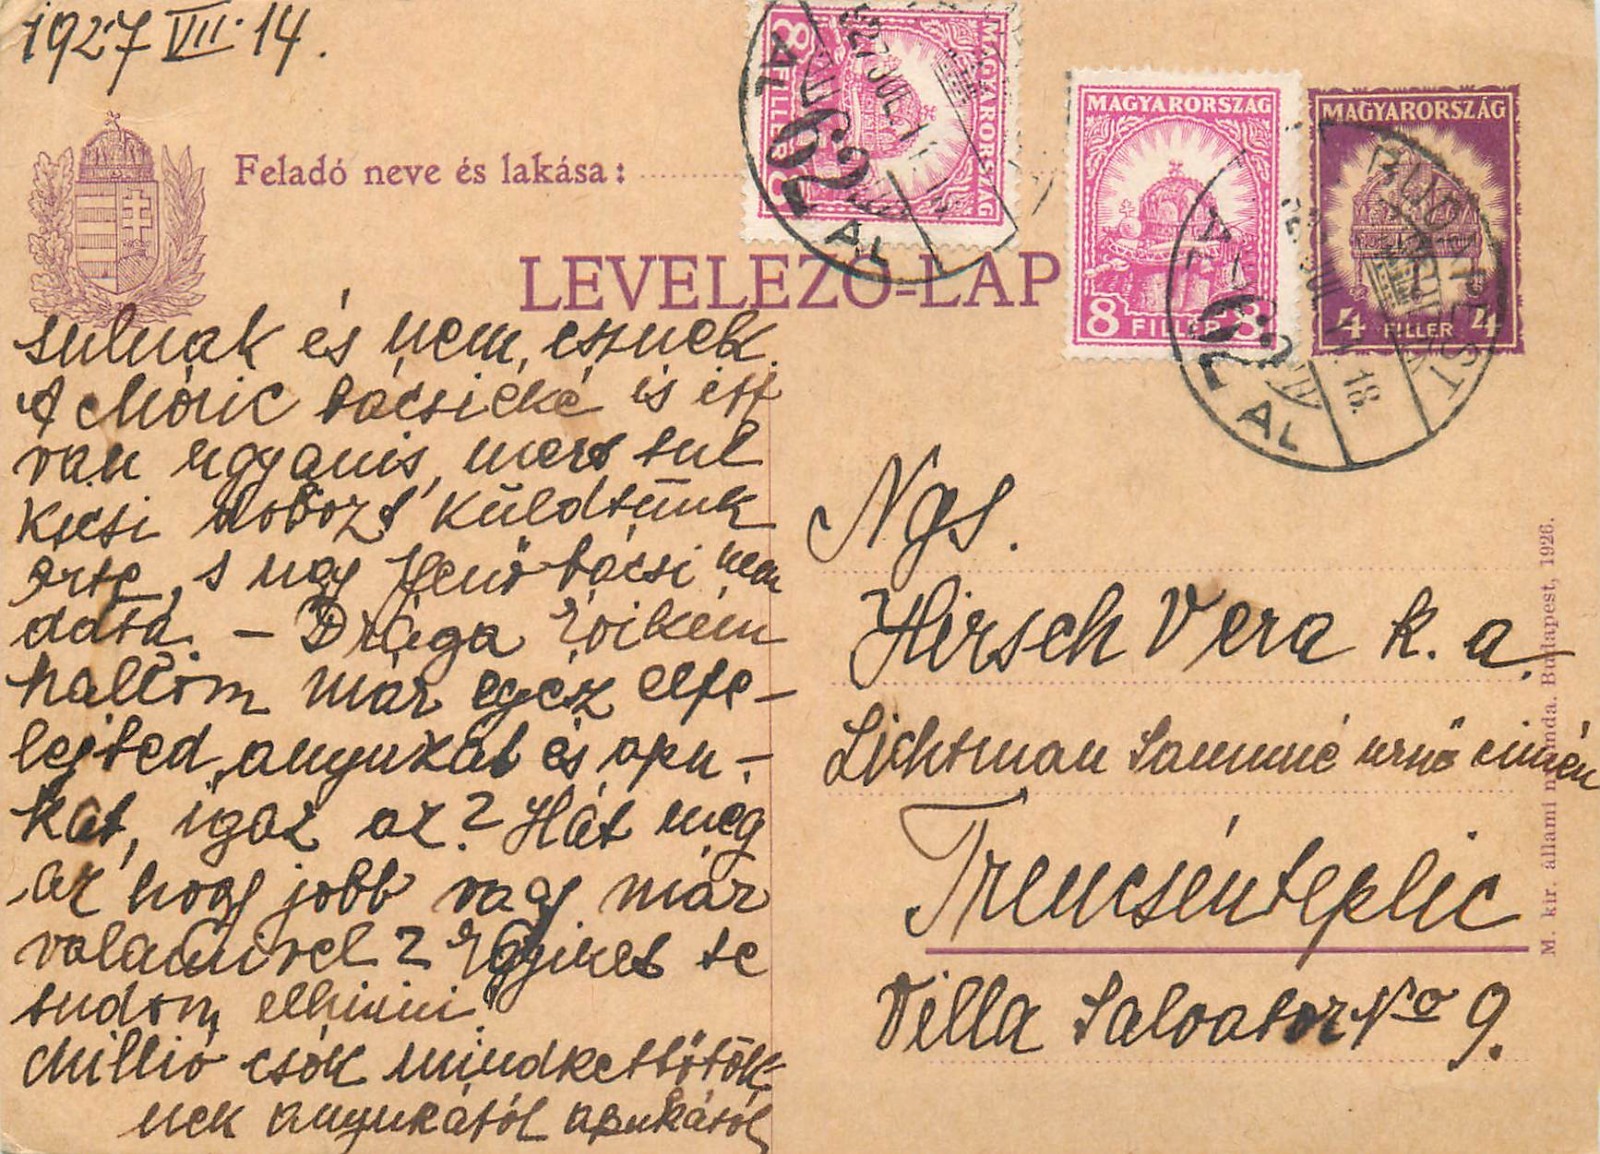 1927 VII. 14.
Feladó neve és lakása:
LEVELEZŐ-LAP
MAGYARORSZÁG
8 FILLÉR 8
MAGYARORSZÁG
8 FILLÉR 8
MAGYARORSZÁG
4 FILLÉR 4
BUDAPEST
62
62
nulnak és nem esznek.
A Móric bácsiéké is itt
van ugyanis, mert tul
kicsi dobozt küldtünk
érte, s ugy Jenő bácsi nem
data. – Drága Évikém
hallom már egész elfe-
lejted anyukát és apu-
kát, igaz az? Hát még
az hogy jobb vagy már
valamivel? Egyiket se
tudom elhinni.
Millió csók mindkettőtök-
nek anyukától apukától
Ngs.
Hirsch Vera k. a.
Lichtman Samuné urnő cimén
Trencsénteplic
Villa Salvator No 9.
M. kir. állami nyomda. Budapest, 1926.